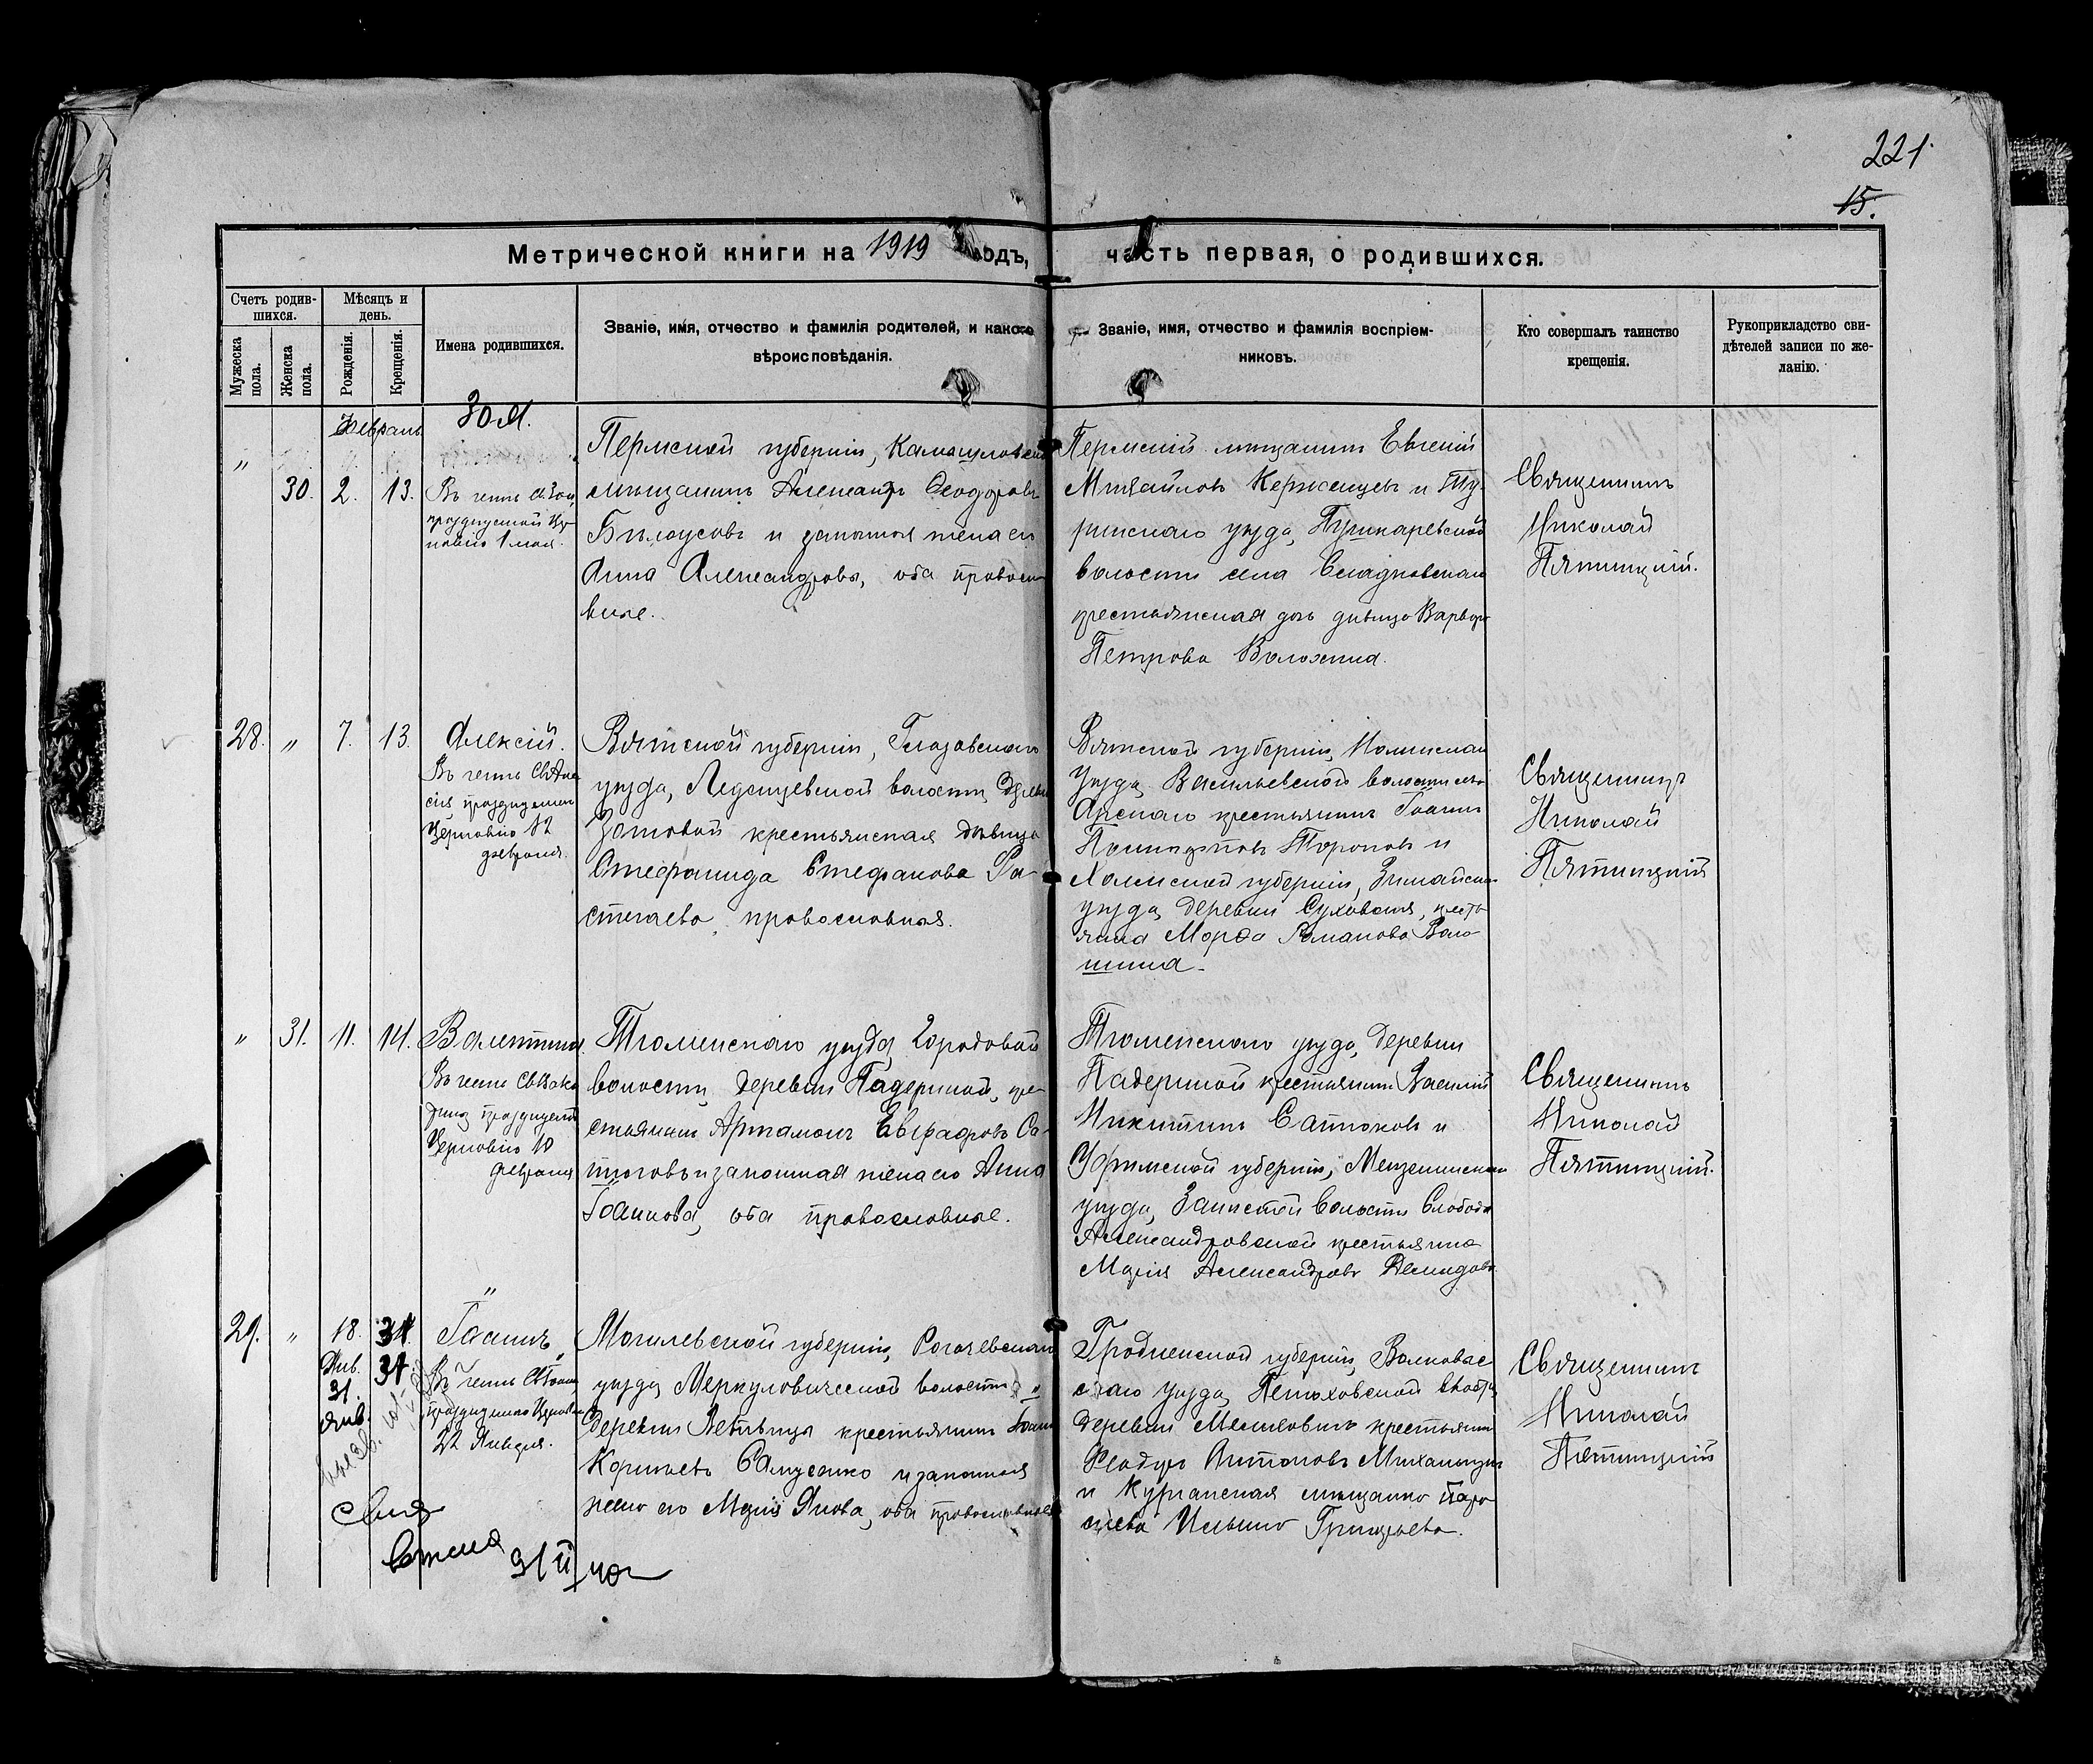 221
15.
Метрической книги на 1919 годъ,
часть первая, о родившихся.
Счетъ родив-
шихся.
Мужеска
пола.
Женска
пола.
Мѣсяцъ и
день.
Рожденія.
Крещенія.
Имена родившихся.
Званіе, имя, отчество и фамилія родителей, и какого
вѣроисповѣданія.
Званіе, имя, отчество и фамилія воспріем-
никовъ.
Кто совершалъ таинство
крещенія.
Рукоприкладство сви-
дѣтелей записи по же-
ланію.
Февраль
„ 30. 2. 13.
Зоя.
Въ честь св. Зои,
празднуемой Цер-
ковію 1 мая.
Пермской губерніи, Камышловскій
мѣщанинъ Александръ Ѳеодоровъ
Бѣлоусовъ и законная жена его
Анна Александрова, оба правосла-
вные.
Пермскій мѣщанинъ Евгеній
Михайловъ Керженцевъ и Ту-
ринскаго уѣзда, Пушкаревской
волости села
крестьянская дочь дѣвица Варвара
Петрова Волохина.
Священникъ
Николай
Пятницкій.
28. „ 7. 13.
Алексій.
Въ честь Св. Алек
сія празднуемаго
Церковію 12
февраля.
Вятской губерніи, Глазовскаго
уѣзда, волости,
Зотовой крестьянская дѣвица
Стефанида Стефанова Ра-
стегаева, православная.
Вятской губерніи,
Уѣзда, Васильевской волости
крестьянинъ Іоаннъ
Тороповъ и
Холмской губерніи,
уѣзда, деревни крестья
янка Марѳа Романова Воло-
шина.
Священникъ
Николай
Пятницкій
„ 31. 11. 14.
Валентина
Въ честь Св. Вален
тины празднуемой
Церковію 10
февраля
Тюменскаго уѣзда, Городовой
волости, деревни Падериной, кре-
стьянинъ Артамонъ Са-
и законная жена его Анна
Іоаннова, оба православные.
Тюменскаго уѣзда, деревни
Падериной крестьянинъ Василій
Никитинъ и
Уфимской губерніи, Мензелинскаго
уѣзда, Заинской волости Слободы
Александровской крестьянка
Марія Александрова Демидова.
Священникъ
Николай
Пятницкій.
29. „ 18. 31.
Янв. 31.
31.
Янв.
Іоаннъ
Въ честь Св. Іоанна
празднуемаго Церковію
22 Января.
Могилевской губерніи, Рогачевскаго
уѣзда, Меркуловической волости,
деревни крестьянинъ Іоаннъ
Корнѣевъ Самусенко и законная
жена его Марія Янова, оба православные
Гродненской губерніи, Волковыс
скаго уѣзда, волости,
деревни крестьянинъ
Антоновъ
и Курганская мѣщанка
Ильина Григорьева.
Священникъ
Николай
Пятницкій